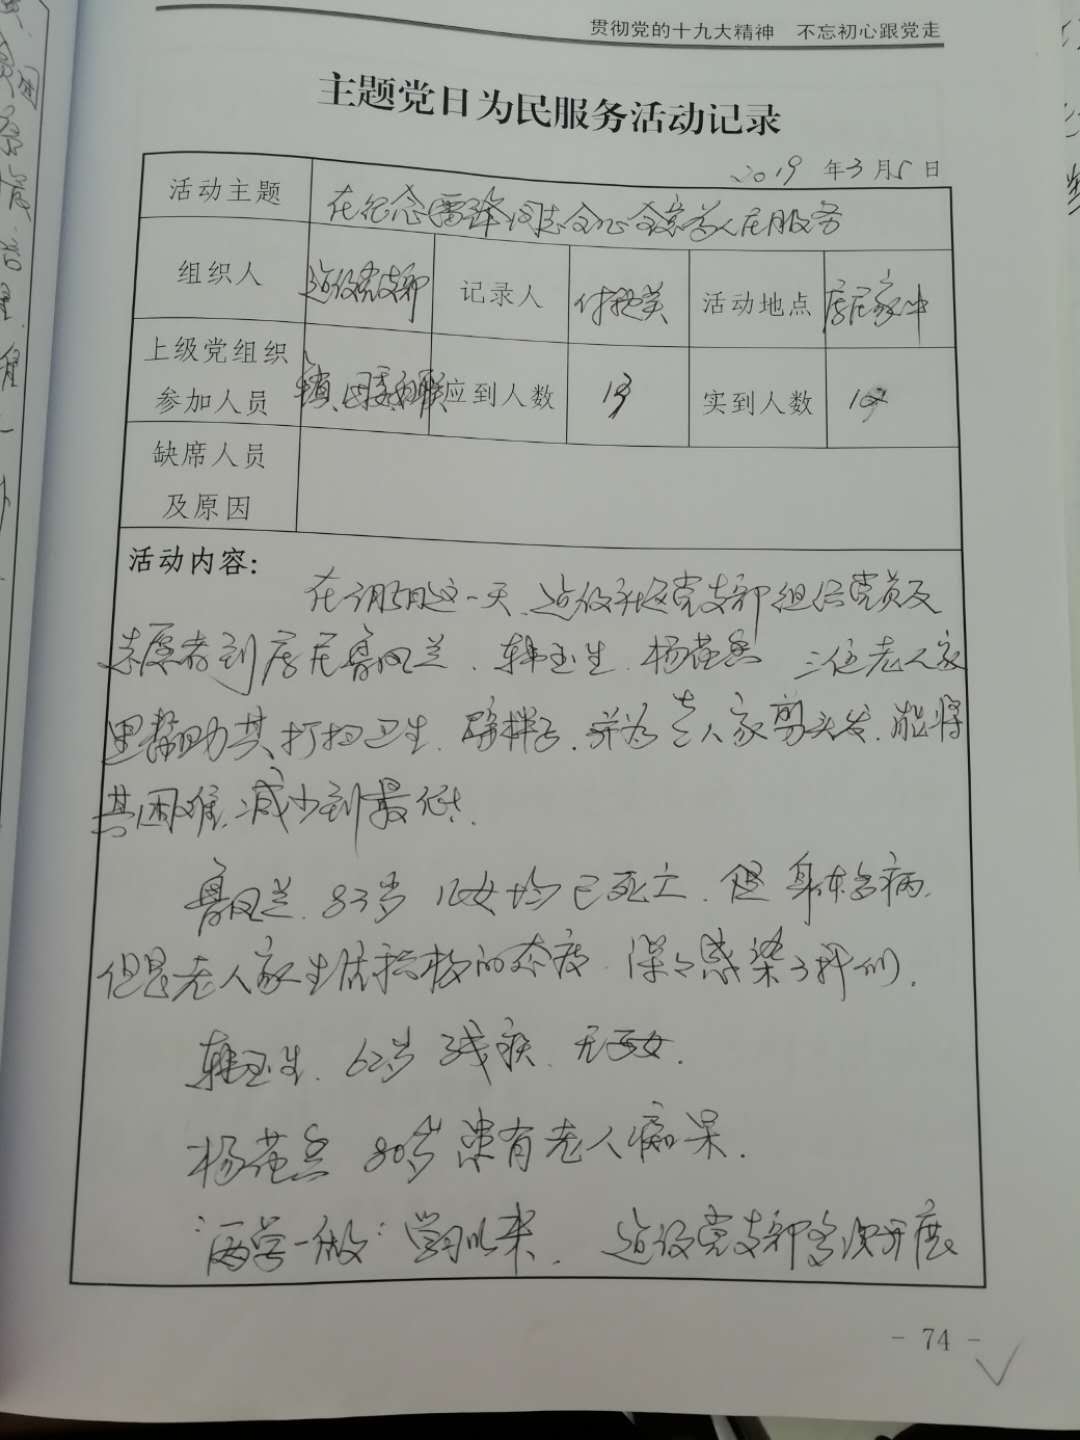 贯彻党的十九大精神 不忘初心跟党走
主题党日为民服务活动记录
2019 年 3 月 5 日
活动主题 在纪念雷锋同志全心全意为人民服务
组织人 党支部 记录人 付 英 活动地点 居民家中
上级党组织
参加人员 镇 应到人数 19 实到人数
缺席人员
及原因
活动内容:
在3月5日这一天, 社区党支部组织党员及
志愿者到居民鲁凤兰、韩玉生、杨花香 三位老人家
里帮助其打扫卫生、 并为老人家剪头发, 能将
其困难减少到最低.
鲁凤兰, 83岁 儿女均已死亡, 但身体多病,
但是老人家生活积极的态度, 深深感染了我们.
韩玉生, 62岁 残疾, 无子女.
杨花香 80岁 患有老人痴呆.
"两学一做" 学习以来, 党支部多次开展
- 74 -